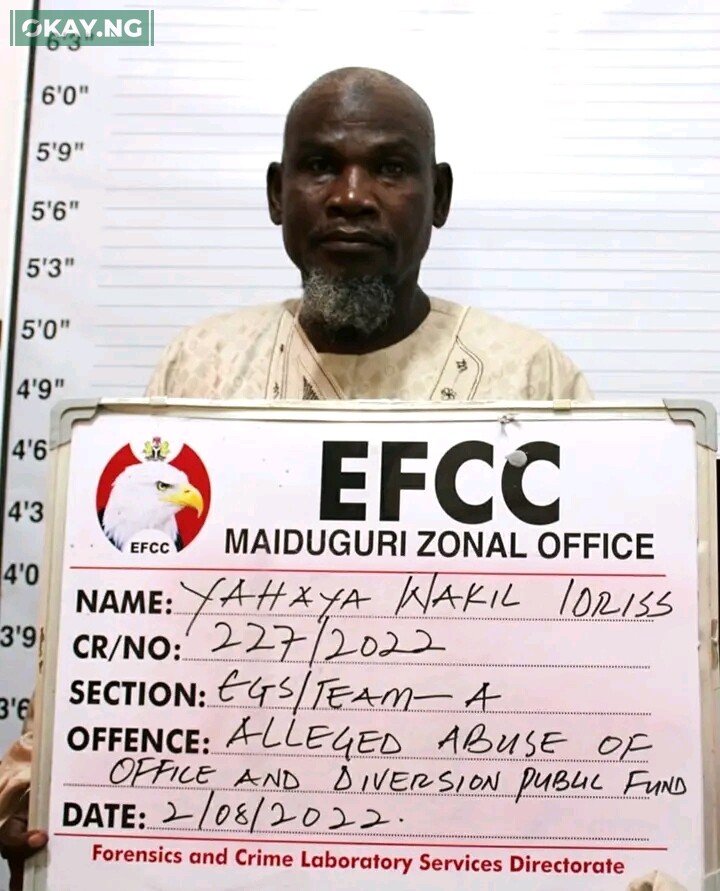 OKAY.NG
6'3"
6'0"
5'9"
5'6"
5'3"
5'0"
4'9"
4'6
4'3
4'0
3'9
3'6
EFCC
EFCC
MAIDUGURI ZONAL OFFICE
NAME: YAHAYA WAKIL IDRISS
CR/NO: 227/2022
SECTION: EGS/TEAM-A
OFFENCE: ALLEGED ABUSE OF
OFFICE AND DIVERSION PUBLIC FUND
DATE: 2/08/2022.
Forensics and Crime Laboratory Services Directorate